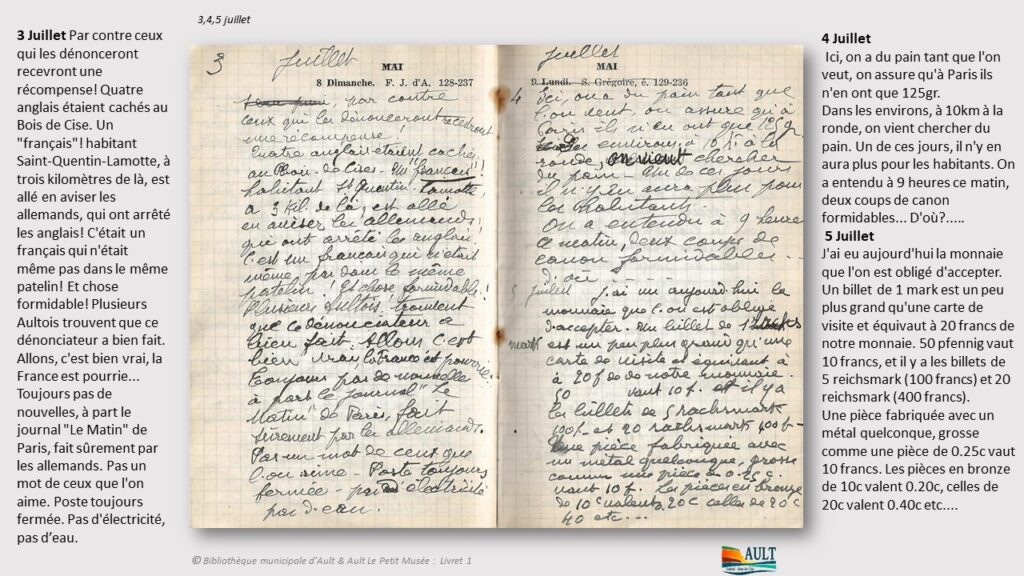 3,4,5 juillet
3 Juillet Par contre ceux
qui les dénonceront
recevront une
récompense! Quatre
anglais étaient cachés au
Bois de Cise. Un
"français"! habitant
Saint-Quentin-Lamotte, à
trois kilomètres de là, est
allé en aviser les
allemands, qui ont arrêté
les anglais! C'était un
français qui n'était
même pas dans le même
patelin! Et chose
formidable! Plusieurs
Aultois trouvent que ce
dénonciateur a bien fait.
Allons, c'est bien vrai, la
France est pourrie...
Toujours pas de
nouvelles, à part le
journal "Le Matin" de
Paris, fait sûrement par
les allemands. Pas un
mot de ceux que l'on
aime. Poste toujours
fermée. Pas d'électricité,
pas d'eau.
3 juillet
MAI
8 Dimanche. F. J. d'A. 128-237
par contre
ceux qui les dénonceront recevront
une récompense!
Quatre anglais étaient cachés
au Bois-de Cise. Un français!!
habitant St Quentin-Lamotte
à 3 kil. de là, est allé
en aviser les allemands,
qui ont arrêté les anglais!
C'est un français qui n'était
même, pas dans le même
patelin! Et chose formidable!
Plusieurs Aultois! trouvent
que ce dénonciateur a
bien fait. Allons, c'est
bien vrai, la France est pourrie
Toujours pas de nouvelle
à part le journal "Le
Matin" de Paris, fait
sûrement par les allemands.
Pas un mot de ceux que
l'on aime - Poste toujours
fermée - pas d'électricité
pas d'eau.
juillet
MAI
9 Lundi. S. Grégoire, é. 129-236
4 Ici, on a du pain tant que
l'on veut, on assure qu'à
Paris ils n'en ont que 125gr
environs, à 10 k. à la
ronde, on vient chercher
du pain - Un de ces jours
il n'y en aura plus pour
les habitants.
On a entendu à 9 heures
ce matin, deux coups de
canon formidables...
d'où...
5 juillet J'ai eu aujourd'hui la
monnaie que l'on est obligé
d'accepter. Un billet de 1
mark est un peu plus grand qu'une
carte de visite et équivaut à
à 20f de notre monnaie.
50 vaut 10f. et il y a
les billets de 5 rachsmark
100f- et 20 rachsmark 400f-
Une pièce fabriquée avec
un métal quelconque, grosse
comme une pièce de 0.25c.
vaut 10f. Les pièces en bronze
de 10c valent 20c celles de 20c
40 etc...
4 Juillet
Ici, on a du pain tant que l'on
veut, on assure qu'à Paris ils
n'en ont que 125gr.
Dans les environs, à 10km à la
ronde, on vient chercher du
pain. Un de ces jours, il n'y en
aura plus pour les habitants. On
a entendu à 9 heures ce matin,
deux coups de canon
formidables... D'où?.....
5 Juillet
J'ai eu aujourd'hui la monnaie
que l'on est obligé d'accepter.
Un billet de 1 mark est un peu
plus grand qu'une carte de
visite et équivaut à 20 francs de
notre monnaie. 50 pfennig vaut
10 francs, et il y a les billets de
5 reichsmark (100 francs) et 20
reichsmark (400 francs).
Une pièce fabriquée avec un
métal quelconque, grosse
comme une pièce de 0.25c vaut
10 francs. Les pièces en bronze
de 10c valent 0.20c, celles de
20c valent 0.40c etc....
© Bibliothèque municipale d'Ault & Ault Le Petit Musée : Livret 1
AULT